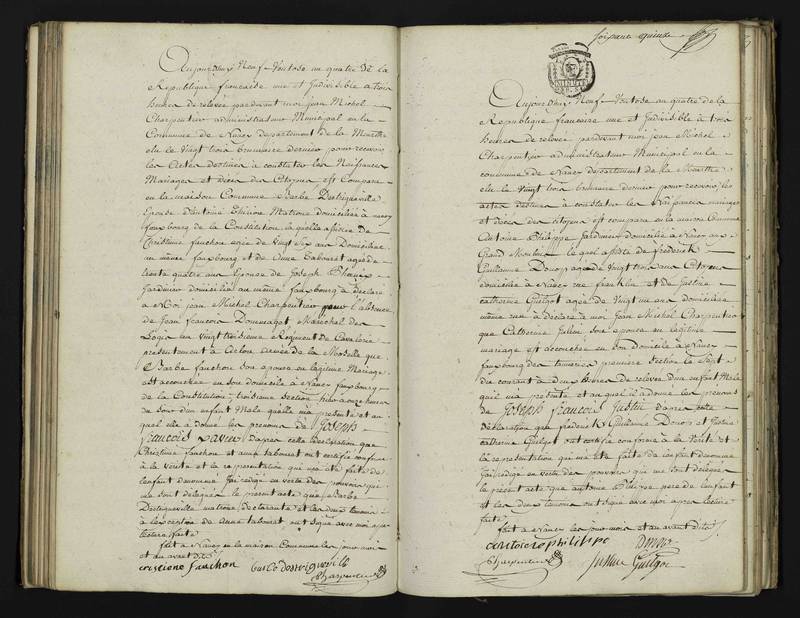 Aujourd'huy Neuf Ventose an quatre de la
Republique francaise une et Indivisible a trois
heures de relevée pardevant moi jean Michel
Charpentier administrateur Municipal en la
Commune de Nancy departement de la Meurthe
elu le vingt trois brumaire dernier pour recevoir
les Actes destinés à constater les Naissances
Mariages et décès des Citoyens, est Comparue
en la maison Commune Barbe
Epouse d'antoine domiciliée à nancy
fauxbourg de la Constitution, la quelle assistée de
Christinne fauchon agée de vingt six ans Domiciliée
au même fauxbourg et de Anne Tabouret agée de
trente quatre ans Epouse de Joseph
Jardinier domicilié au même fauxbourg à Déclaré
à Moi jean Michel Charpentier pour l'absence
de Jean francois Marechal des
Logis au vingt troisieme Régiment de Cavalerie
presentement à armée de la Moselle que
Barbe fauchon son epouse en légitime Mariage
est accouchée en son domicile à Nancy fauxbourg
de la Constitution, troisieme Section hier à onze heures
du soir d'un enfant Male quelle m'a presenté et au
quel elle a donné les prenoms de Joseph
francois Xavier d'apres cette declaration que
Christinne fauchon et anne tabouret ont certifié conforme
à la verité et la representation qui m'a été faite de
l'enfant denommé J'ai rédigé en vertu des pouvoirs qui
me sont délégués le present acte que Barbe
declarante et les deux temoins
à l'exception de Anne tabouret ont signé avec moi après
lecture faite
fait à Nancy en la maison Commune les jour mois
et an avant dits
cristiene fauchon
Charpentier
soixante quinze
Aujourd'huy Neuf Ventose an quatre de la
Republique francaise une et Indivisible à trois
heures de relevée pardevant moi jean Michel
Charpentier administrateur Municipal en la
commune de Nancy departement de la Meurthe
elu le vingt trois brumaire dernier pour recevoir les
actes destinés à constater les Naissances mariages
et décès des citoyens est comparu en la maison Commune
Antoine Philippe Jardinier domicilié à Nancy au
Grand Moulin le quel assisté de frederick
Guillaume agé de vingt trois ans Citoyen
domicilié à Nancy rue franklin et de Justine
catherine Guilgot agée de vingt un ans domiciliée
même rue à déclaré à moi Jean Michel Charpentier
que Catherine son epouse en légitime
mariage est accouchée en son domicile à Nancy
fauxbourg des tanneries premiere Section le Sept
du courant à deux heures de relevée d'un enfant Male
quil m'a presenté et au quel il à donné les prenoms
de Joseph francois Justin d'apres cette
déclaration que frederick Guillaume et Justine
catherine Guilgot ont certifié conforme à la Verité et
la representation qui m'a été faite de l'enfant denommé
J'ai rédigé en vertu des pouvoirs qui me sont délégués
le present acte que antoine Philippe pere de l'enfant
et les deux temoins ont signé avec moi apres lecture
faite
fait à Nancy les jour mois et an avant dits
antoine philippe
Charpentier Justine Guilgot